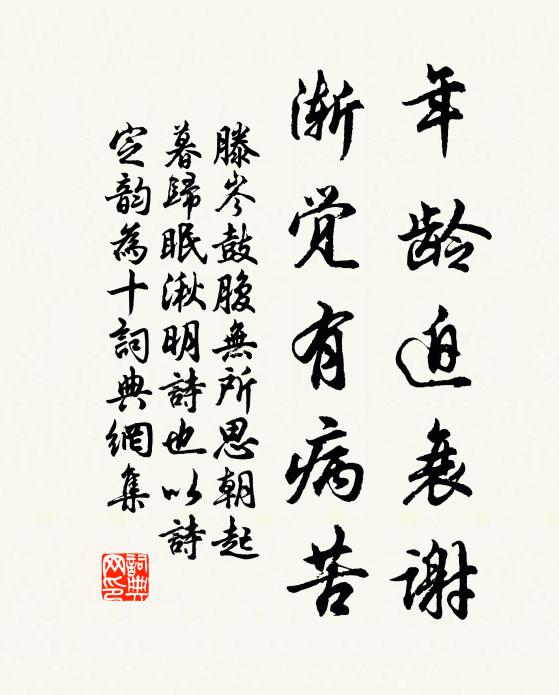 年龄迫衰谢
渐觉有病苦
滕岑鼓腹無所思朝起
暮歸眠湫明詩也以詩
定韵為十詞典網集
詞典网印